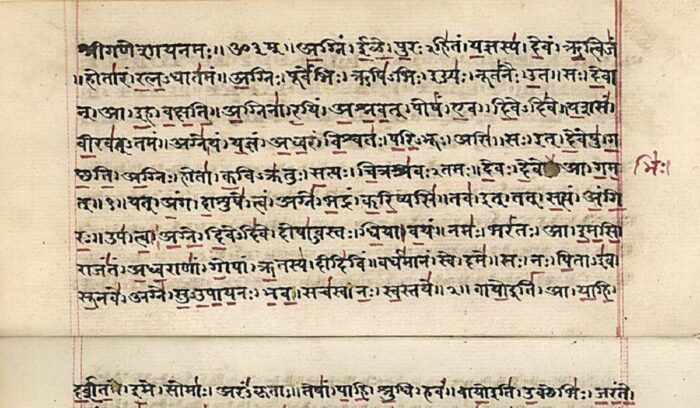 श्रीगणेशायनमः॥ॐ३म्॥अ॒ग्निं।ई॒ळे॒।पु॒रः२हि॑तं।य॒ज्ञस्य॑।दे॒वं।ऋ॒त्विजं॑
॥होता॑रं।र॒त्न॒२धात॑मं॥अ॒ग्निः।पूर्वे॑भिः।ऋषि॑२भिः।ईड्यः॑।नूत॑नैः।उ॒त।सः।दे॒वा
न्।आ।इ॒ह।व॒क्ष॒ति॒॥अ॒ग्निना॑।र॒यिं।अ॒श्न॒व॒त्।पोषं॑।ए॒व।दि॒वे२दि॑वे।य॒शसं॑
वी॒रव॑त्२तमं॥अग्ने॑।यं।य॒ज्ञं।अ॒ध्व॒रं।वि॒श्वतः॑।प॒रि॒२भूः।असि॑।सः।इत्।दे॒वेषु॑।ग॒
च्छ॒ति॒॥अ॒ग्निः।होता॑।क॒वि२क्र॑तुः।स॒त्यः।चि॒त्रश्र॑वः२तमः॥दे॒वः।दे॒वे।आ।ग॒म॒
भिः॑
त्॥१॥यत्।अं॒ग।दा॒शुषे॑।त्वं।अग्ने॑।भ॒द्रं।क॒रि॒ष्यसि॑।तव॑।इत्।तत्।स॒त्यं।अं॒गि॒
रः॒॥उप॑।त्वा॒।अ॒ग्ने॒।दि॒वे२दि॑वे।दोषा॑२वस्तः।धि॒या।व॒यं।नमः॑।भरं॑तः।आ।इ॒म॒सि॒
राजं॑तं।अ॒ध्व॒राणां॑।गो॒पां।ऋ॒तस्य॑।दीदि॑विं॥वर्ध॑मानं।स्वे।दमे॑॥सः।नः॒।पि॒ता२इ॑व
सू॒नवे॑।अग्ने॑।सु॒२उ॒पा॒य॒नः।भ॒व॒।सच॑स्व।नः॒।स्व॒स्तये॑॥२॥वायो॒इति॑।आ।या॒हि॒
द॒र्श॒त॒।इ॒मे।सोमाः॑।अरं॑२कृताः।तेषां॑।पा॒हि॒।श्रु॒धि।हवं॑॥वायो॒इति॑।उ॒क्थेभिः॑।जरं॑ते